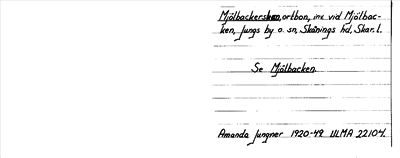 Mjölbackersken, ortbon, inv. vid Mjölbac-
ken, Jungs by o. sn, Skånings hd, Skar. l.
Se Mjölbacken.
Amanda Jungner 1920-48 ULMA 22104.